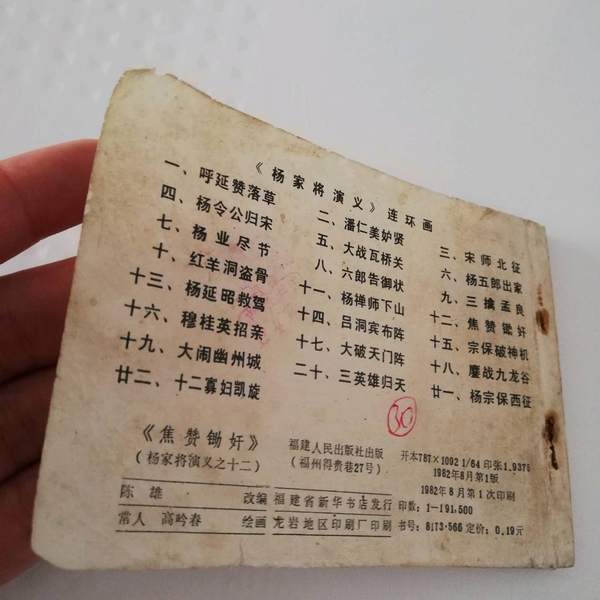 《杨家将演义》连环画
一、呼延赞落草 二、潘仁美妒贤 三、宋师北征
四、杨令公归宋 五、大战瓦桥关 六、杨五郎出家
七、杨业尽节 八、六郎告御状 九、三擒孟良
十、红羊洞盗骨 十一、杨禅师下山 十二、焦赞锄奸
十三、杨延昭救驾 十四、吕洞宾布阵 十五、宗保破神机
十六、穆桂英招亲 十七、大破天门阵 十八、鏖战九龙谷
十九、大闹幽州城 二十、三英雄归天 廿一、杨宗保西征
廿二、十二寡妇凯旋
30
《焦赞锄奸》
(杨家将演义之十二)
福建人民出版社出版
(福州得贵巷27号)
开本787×1092 1/64 印张1.9375
1982年8月第1版
1982年8月第1次印刷
陈雄 改编 福建省新华书店发行 印数:1—191,500
常人 高吟春 绘画 龙岩地区印刷厂印刷 书号:8173·566 定价:0.19元